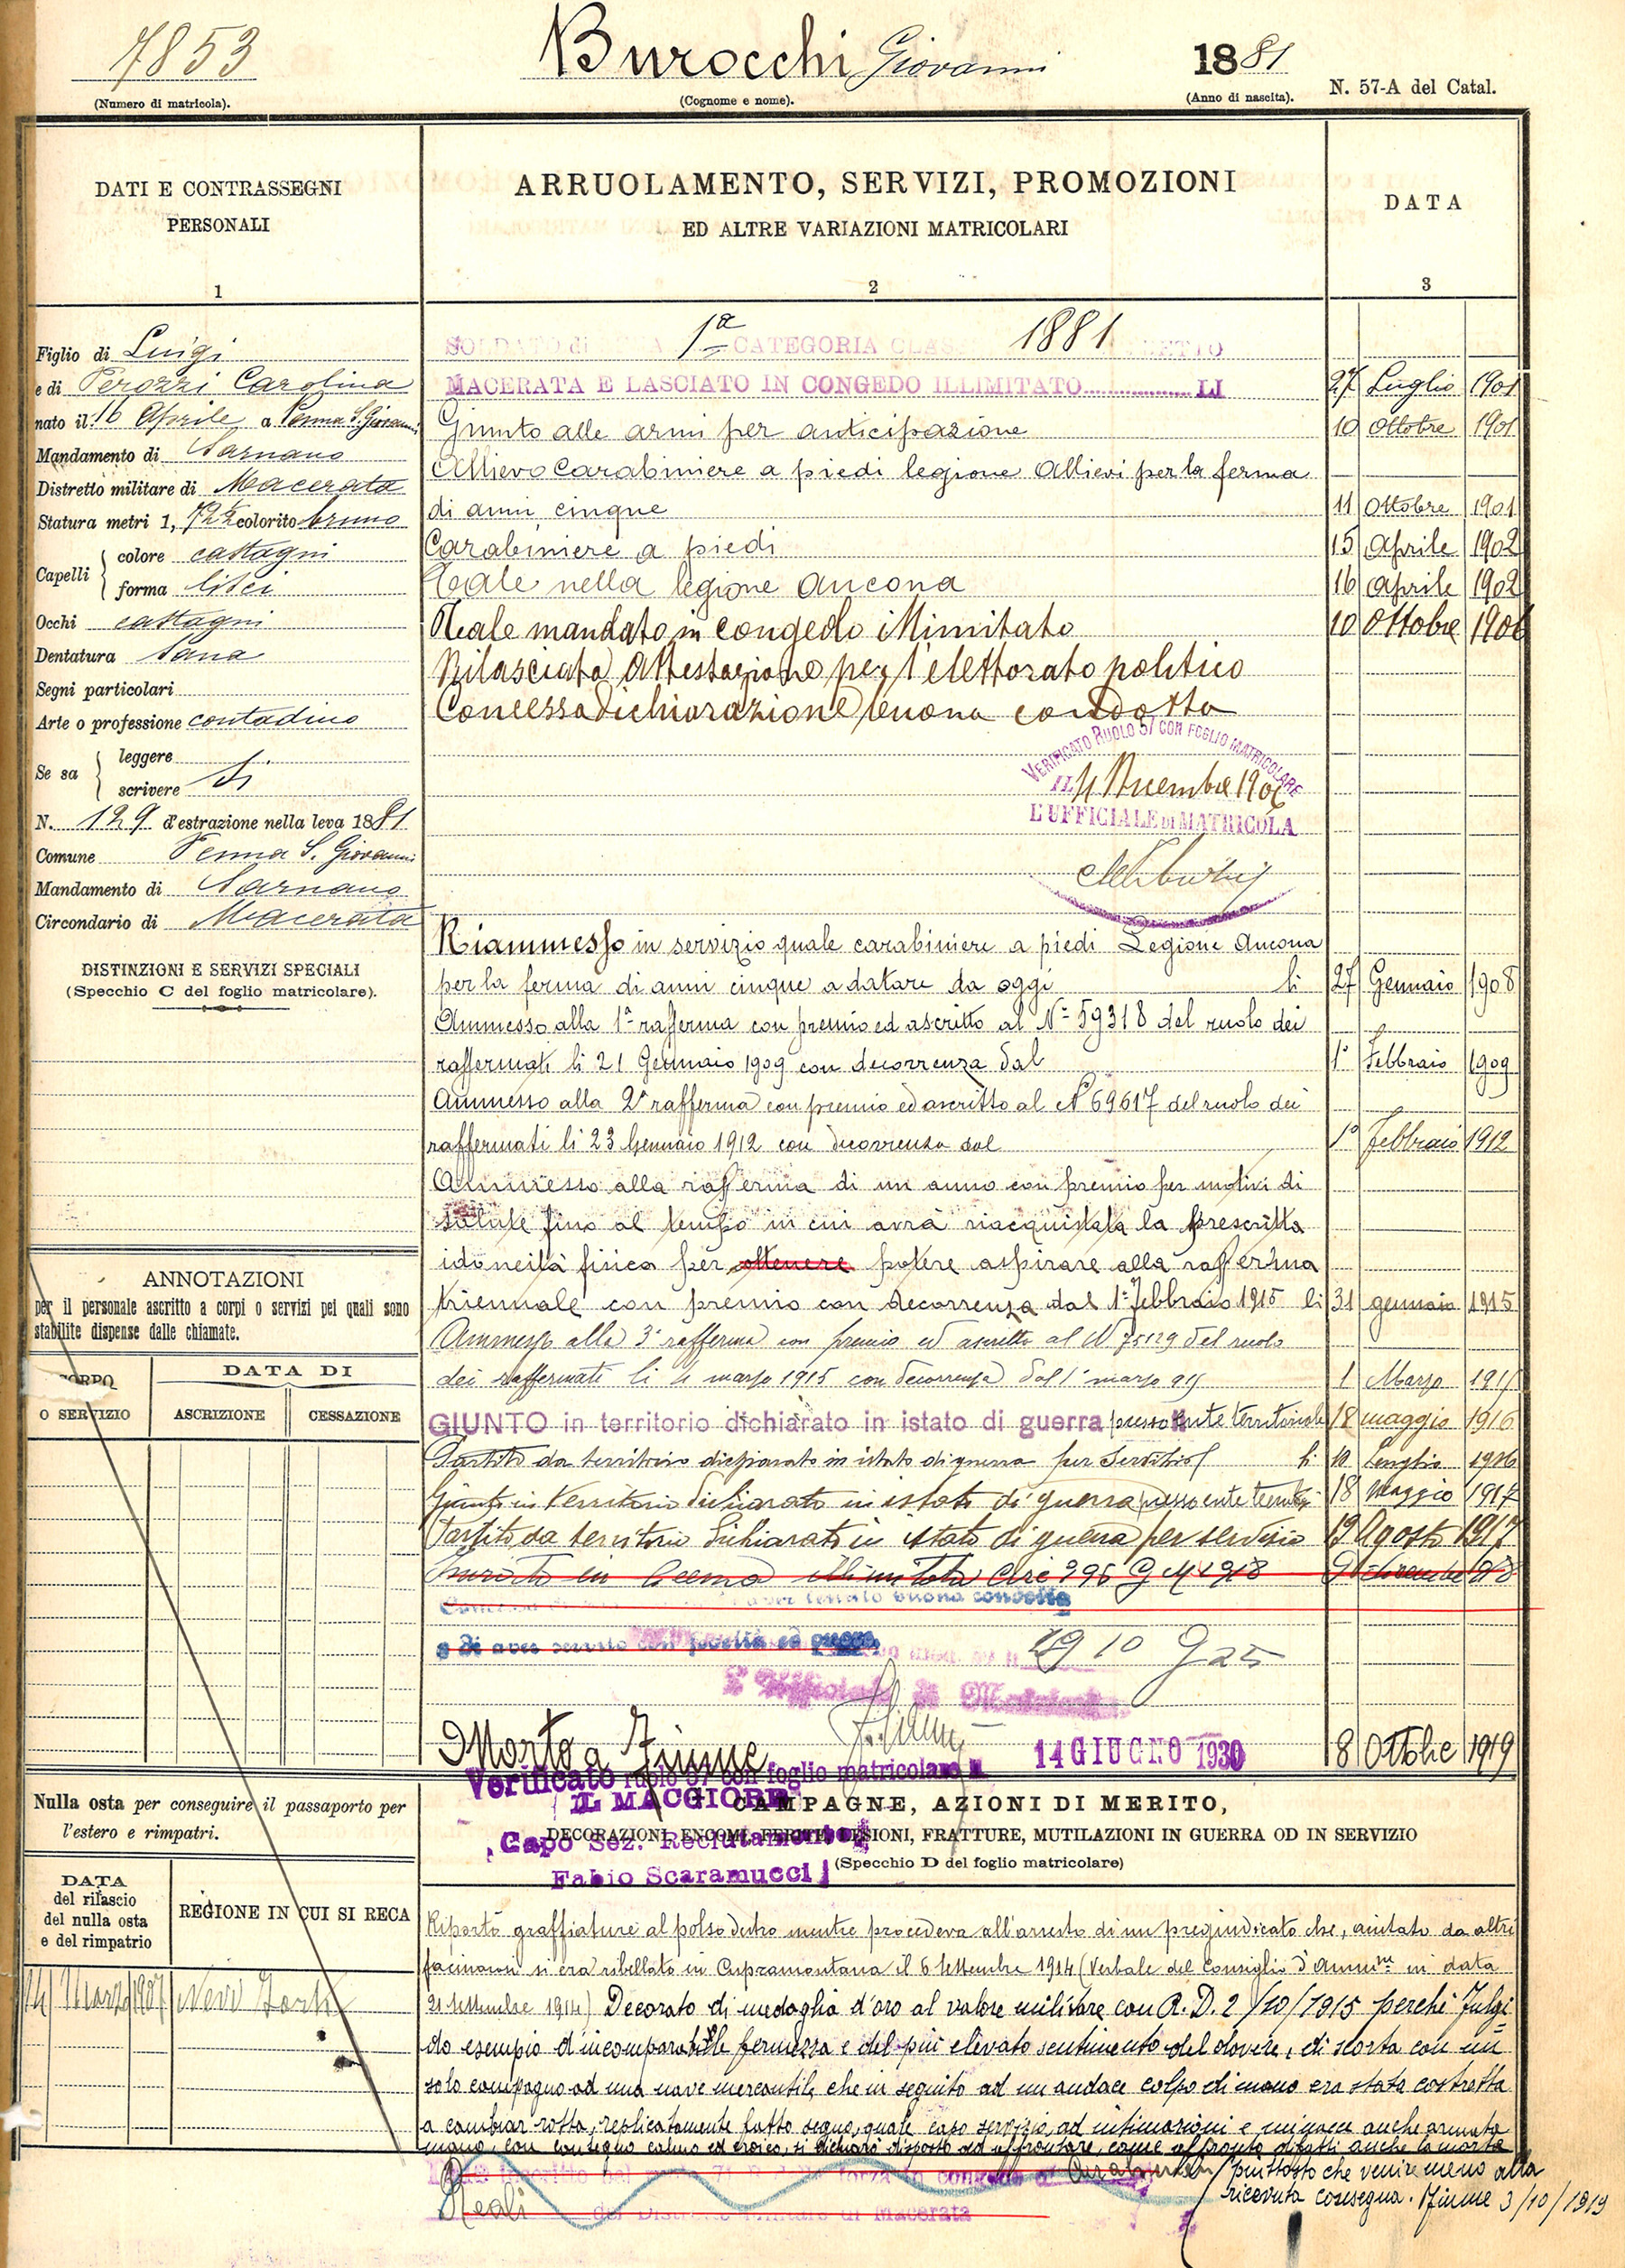 7853
(Numero di matricola).
Burocchi Giovanni
(Cognome e nome).
1881
(Anno di nascita).
N. 57-A del Catal.
DATI E CONTRASSEGNI
PERSONALI
1
Figlio di Luigi
e di Perozzi Carolina
nato il 16 Aprile a Penna S. Giovanni
Mandamento di Sarnano
Distretto militare di Macerata
Statura metri 1, 72½ colorito bruno
Capelli colore castagni
forma lisci
Occhi castagni
Dentatura sana
Segni particolari
Arte o professione contadino
Se sa leggere
scrivere si
N. 129 d'estrazione nella leva 1881
Comune Penna S. Giovanni
Mandamento di Sarnano
Circondario di Macerata
DISTINZIONI E SERVIZI SPECIALI
(Specchio C del foglio matricolare).
ANNOTAZIONI
per il personale ascritto a corpi o servizi pei quali sono
stabilite dispense dalle chiamate.
CORPO
O SERVIZIO
DATA DI
ASCRIZIONE
CESSAZIONE
Nulla osta per conseguire il passaporto per
l'estero e rimpatri.
DATA
del rilascio
del nulla osta
e del rimpatrio
REGIONE IN CUI SI RECA
14 Marzo 1907 New York
ARRUOLAMENTO, SERVIZI, PROMOZIONI
ED ALTRE VARIAZIONI MATRICOLARI
2
DATA
3
SOLDATO di 1ª CATEGORIA CLASSE 1881
MACERATA E LASCIATO IN CONGEDO ILLIMITATO LI 27 Luglio 1901
Giunto alle armi per anticipazione 10 Ottobre 1901
Allievo Carabiniere a piedi legione Allievi per la ferma
di anni cinque 11 Ottobre 1901
Carabiniere a piedi 15 Aprile 1902
Tale nella legione Ancona 16 Aprile 1902
Tale mandato in congedo illimitato 10 Ottobre 1906
Rilasciata Attestazione per l'elettorato politico
Concessa dichiarazione buona condotta
VERIFICATO RUOLO 57 CON FOGLIO MATRICOLARE
IL 4 Dicembre 1906
L'UFFICIALE DI MATRICOLA
Riammesso in servizio quale carabiniere a piedi Legione Ancona
per la ferma di anni cinque a datare da oggi li 27 Gennaio 1908
Ammesso alla 1ª rafferma con premio ed ascritto al Nº 59318 del ruolo dei
raffermati li 21 Gennaio 1909 con decorrenza dal 1º Febbraio 1909
Ammesso alla 2ª rafferma con premio ed ascritto al Nº 69617 del ruolo dei
raffermati li 23 Gennaio 1912 con decorrenza dal 1º Febbraio 1912
Ammesso alla rafferma di un anno con premio per motivi di
salute fino al tempo in cui avrà riacquistata la prescritta
idoneità fisica per ottenere potere aspirare alla rafferma
triennale con premio con decorrenza dal 1º Febbraio 1915 li 31 gennaio 1915
Ammesso alla 3ª rafferma con premio ed ascritto al Nº 75129 del ruolo
dei raffermati li 4 marzo 1915 con decorrenza dal 1º marzo 915 1 Marzo 1915
GIUNTO in territorio dichiarato in istato di guerra presso Ente territoriale 18 maggio 1916
Partito da territorio dichiarato in istato di guerra per servizio li 10 Luglio 1916
Giunto in territorio dichiarato in istato di guerra presso ente territ. 18 Maggio 1917
Partito da territorio dichiarato in istato di guerra per servizio 19 Agosto 1917
in illimitata Circ 396 G M 1918 9 dicembre 918
aver tenuto buona condotta
e di aver servito con fedeltà ed onore
910 G 25
Morto a Fiume 8 Ottobre 1919
14 GIUGNO 1930
Verificato ruolo 57 con foglio matricolare
IL MAGGIORE
Capo Sez. Reclutamento
Fabio Scaramucci
CAMPAGNE, AZIONI DI MERITO,
DECORAZIONI, ENCOMI, FERITE, LESIONI, FRATTURE, MUTILAZIONI IN GUERRA OD IN SERVIZIO
(Specchio D del foglio matricolare)
Riportò graffiature al polso destro mentre procedeva all'arresto di un pregiudicato che, aiutato da altri
facinorosi si era ribellato in Cupramontana il 6 Settembre 1914 (Verbale del Consiglio d'Ammne in data
21 Settembre 1914) Decorato di medaglia d'oro al valore militare con R. D. 2/10/1915 perchè Fulgi=
do esempio d'incomparabile fermezza e del più elevato sentimento del dovere, di scorta con un
solo compagno ad una nave mercantile, che in seguito ad un audace colpo di mano era stata costretta
a cambiar rotta, replicatamente fatto segno, quale capo servizio, ad intimazioni e minacce anche armata
mano, con contegno calmo ed eroico, si dichiarò disposto ad affrontare, come affrontò difatti anche la morte
piuttosto che venire meno alla
ricevuta consegna. Fiume 3/10/1919
Carabinieri
Reali
del Distretto Militare di Macerata